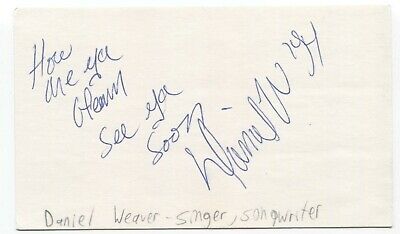 How
are ya
Glenn
see ya
soon -
Daniel W '94
Daniel Weaver - singer, songwriter